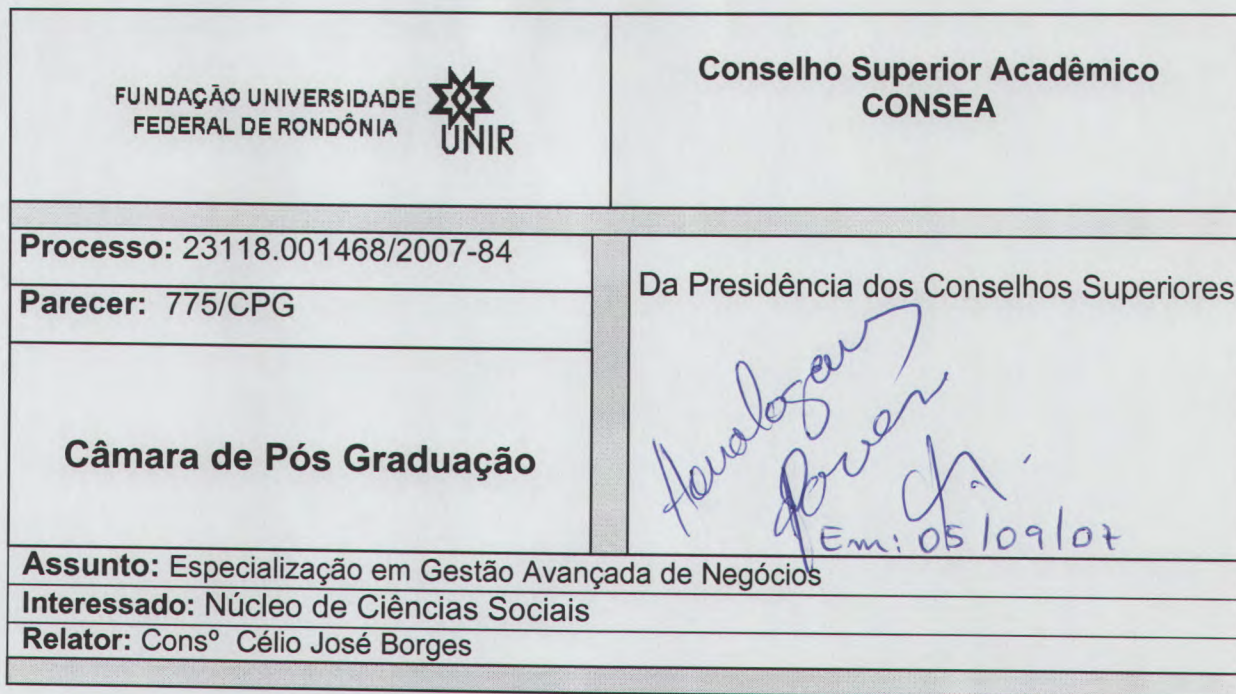 FUNDAÇÃO UNIVERSIDADE
FEDERAL DE RONDÔNIA
UNIR
Conselho Superior Acadêmico
CONSEA
Processo: 23118.001468/2007-84
Parecer: 775/CPG
Câmara de Pós Graduação
Da Presidência dos Conselhos Superiores
Em: 05/09/07
Assunto: Especialização em Gestão Avançada de Negócios
Interessado: Núcleo de Ciências Sociais
Relator: Consº Célio José Borges